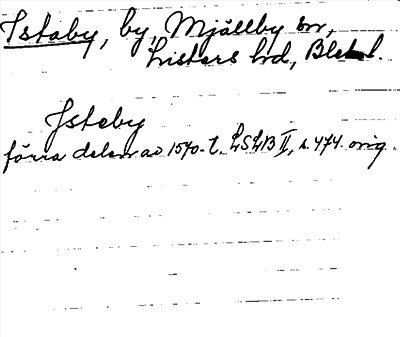 Istaby, by, Mjällby sn,
Listers hd, Blek. l.
Isteby
förra delen av 1570-t. LSLB II, s. 474 orig.